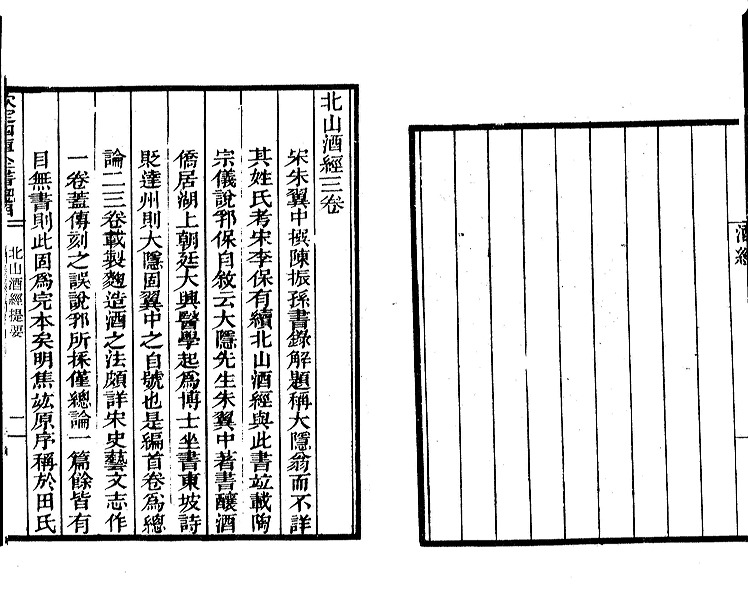 酒經
北山酒經三卷
宋朱翼中撰陳振孫書錄解題稱大隱翁而不詳
其姓氏考宋李保有續北山酒經與此書竝載陶
宗儀說郛保自敘云大隱先生朱翼中著書釀酒
僑居湖上朝廷大興醫學起爲博士坐書東坡詩
貶達州則大隱固翼中之自號也是編首卷爲總
論二三卷載製麴造酒之法頗詳宋史藝文志作
一卷蓋傳刻之誤說郛所採僅總論一篇餘皆有
目無書則此固爲完本矣明焦竑原序稱於田氏
北山酒經提要 一